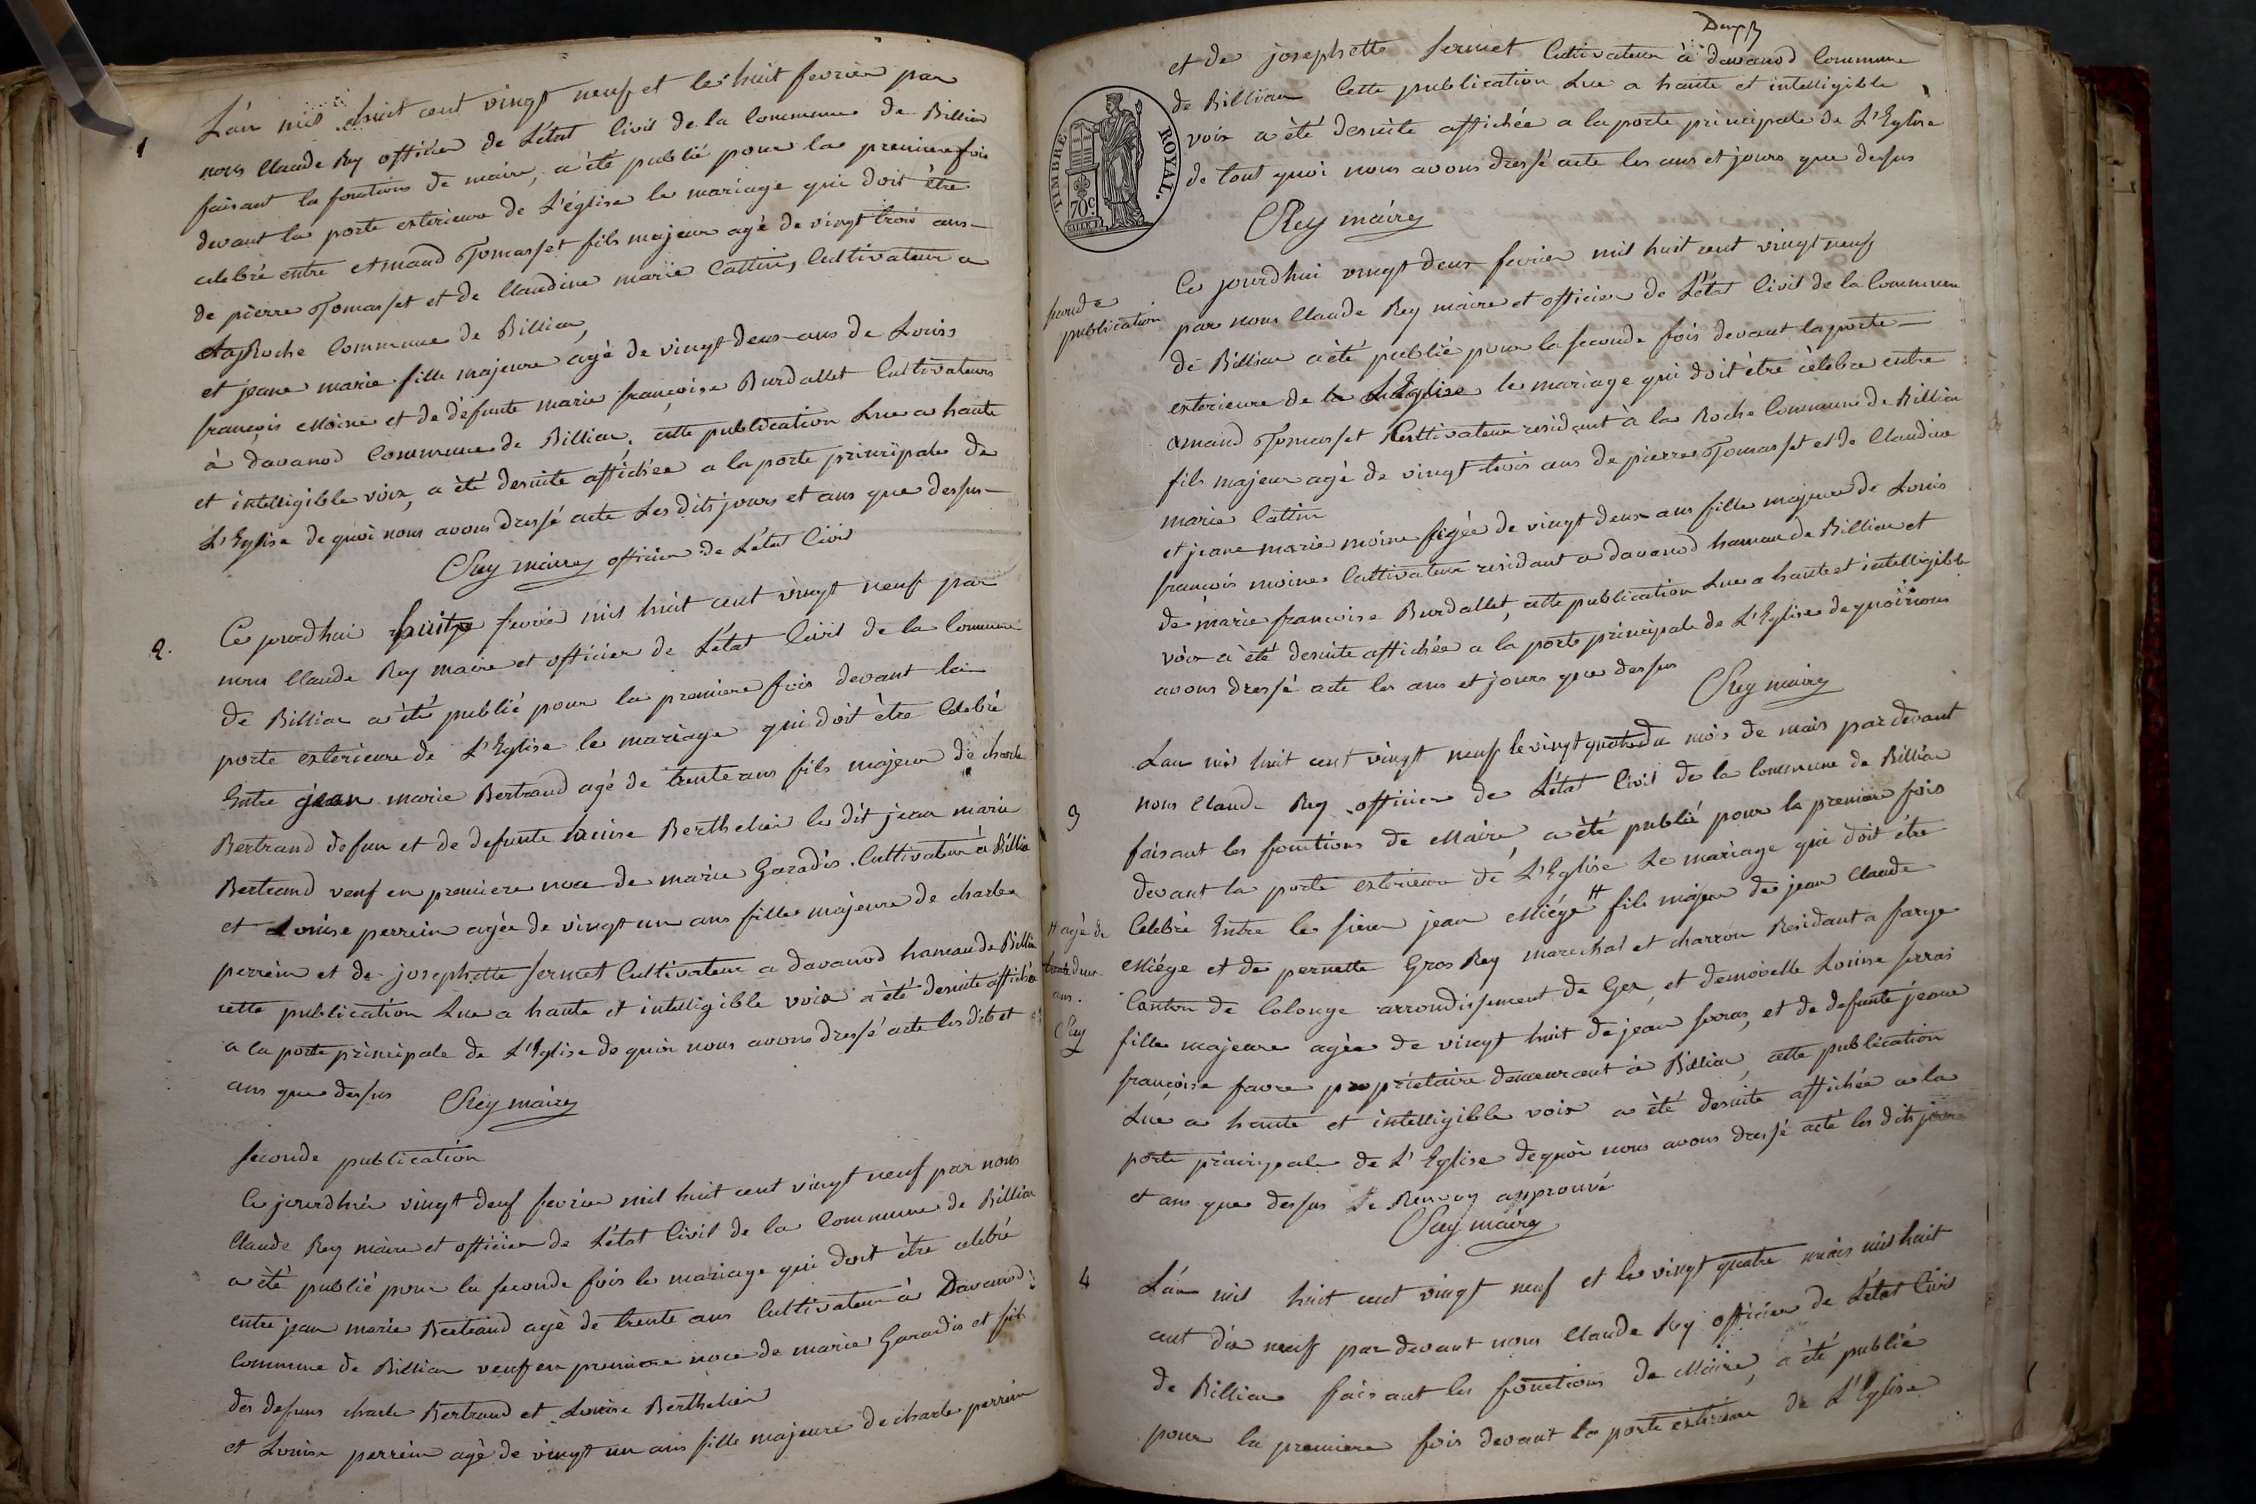 1
L'an mil huit cent vingt neuf et le huit fevrier par
nous Claude Rey officier de L'état Civil de la Commune de Billiau
faisant la fonctions de maire, a été publié pour la premiere fois
devant la porte exterieure de L'église le mariage qui doit être
celebré entre Amand Tomasset fils majeur agé de vingt trois ans
de pierre Tomasset et de Claudine marie Cattin, Cultivateur a
La Roche Commune de Billiau,
et jeane marie fille majeure agé de vingt deux ans de Louis
françois Moine et de défunte marie françoise Burdallet Cultivateurs
à davanod Commune de Billiau. cette publication Lue a haute
et intelligible voix, a été desuite affichée a la porte principale de
L'Eglise de quoi nous avons dressé acte Les dits jours et ans que dessus
CRey maire officier de L'état Civil
2.
Ce jourdhui huit fevrier mil huit cent vingt neuf par
nous Claude Rey maire et officier de L'état Civil de la Commune
de Billiau a été publié pour la premiere fois devant la
porte exterieure de L'Eglise le mariage qui doit être Celebré
Entre jean marie Bertrand agé de trente ans fils majeur de charle
Bertrand defun et de defunte Louise Berthelier le dit jean marie
Bertrand veuf en premiere noce de marie Garadis Cultivateur à Billiau
et Louise perrein agée de vingt un ans fille majeure de charles
perrein et de josephette Sermet Cultivateur a davanod hameau de Billiau
cette publication Lue a haute et intelligible voix a été desuite affichée
a la porte principale de L'Eglise de quoi nous avons dressé acte les dits et
ans que dessus CRey maire
seconde publication
Ce jourdhui vingt deux fevrier mil huit cent vingt neuf par nous
Claude Rey maire et officier de L'état Civil de la Commune de Billiau
a été publié pour la seconde fois le mariage qui doit être celebré
entre jean marie Bertrand agé de trente ans Cultivateur à Davanod
Commune de Billiau veuf en premiere noce de marie Garadis et fils
des defuns charle Bertrand et Louise Berthelier
et Louise perrein agé de vingt un ans fille majeure de charle perrein
Deux
et de josephette Sermet Cultivateur à davanod Commune
de Billiau Cette publication Lue a haute et intelligible
voix a été desuite affichée a la porte principale de L'Eglise
de tout quoi nous avons dressé acte les ans et jours que dessus
TIMBRE ROYAL.
70c.
CRey maire
seconde
publication
Ce jourdhui vingt deux fevrier mil huit cent vingt neuf
par nous Claude Rey maire et officier de L'état Civil de la Commune
de Billiau a été publié pour la seconde fois devant la porte
exterieure de la L'Eglise le mariage qui doit être célebre entre
amand Tomasset Cultivateur residant à la Roche Commune de Billiau
fils majeur agé de vingt trois ans de pierre Tomasset et de Claudine
marie Cattin
et jeane marie moine agée de vingt deux ans fille majeure de Louis
francois moine Cultivateur residant a davanod hameau de Billiau et
de marie francoise Burdallet, cette publication Lue a haute et intelligible
voix a été desuite affichée a la porte principale de L'Eglise de quoi nous
avons dressé acte les ans et jours que dessus
CRey maire
3
Lan mil huit cent vingt neuf le vingt quatre du mois de mais par devant
nous Claude Rey officier de L'état Civil de la Commune de Billiau
faisant les fonctions de Maire, a été publié pour la premiere fois
devant la porte exterieure de L'Eglise Le mariage qui doit être
Celebré Entre le sieur jean Miége # fils majeur de jean Claude
# agé de
trente deux
ans.
CRey
Miége et de pernette Gros Rey marechal et charron Residant a farge
Canton de Colonge arrondissement de Gex, et demoiselle Louise ferras
fille majeure agée de vingt huit de jean ferras, et de defunte jeane
françoise favre propriétaire demeurant à Billiau, cette publication
Lue a haute et intelligible voix a été desuite affichée a la
porte principale de L'Eglise de quoi nous avons dressé acté les dits jour
et ans que dessus Le Renvoy approuvé
CRey maire
4
L'an mil huit cent vingt neuf et le vingt quatre mais mil huit
cent dix neuf par devant nous Claude Rey officier de L'état Civil
de Billiau faisant les fonctions de Maire, a été publié
pour la premiere fois devant la porte exterieure de L'Eglise